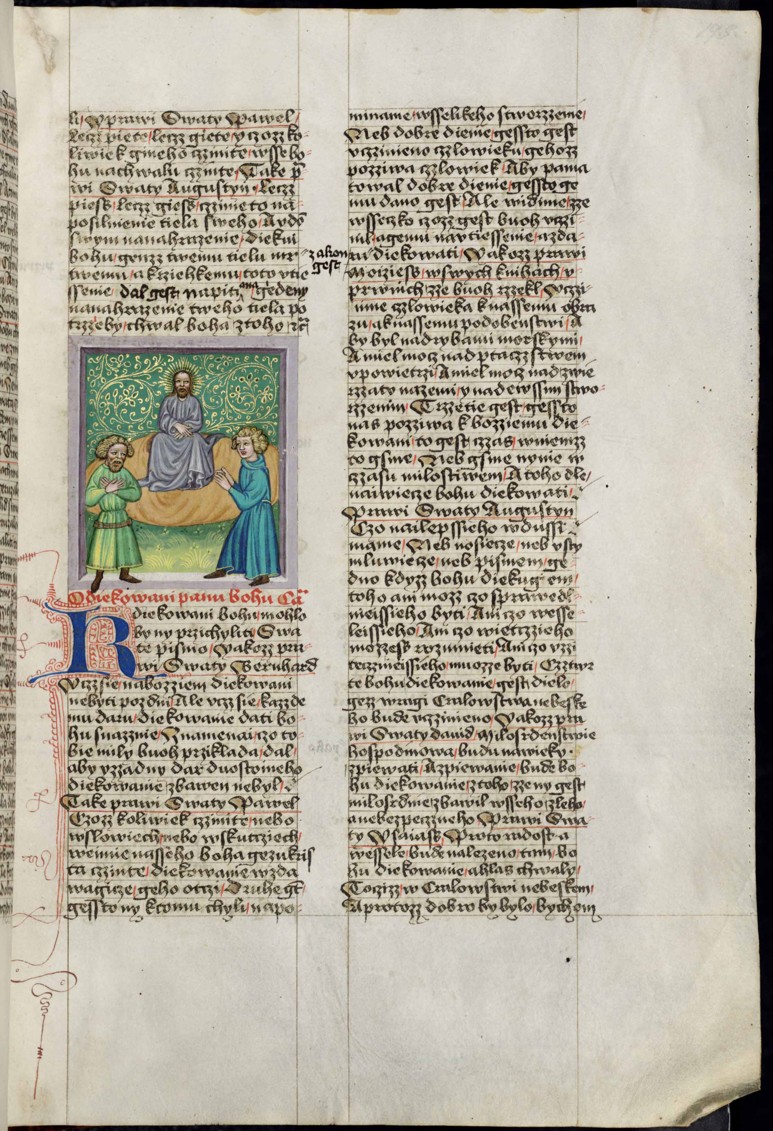 li / Y prawi Swaty Pawel /
Leczz piete / leczz giete / y czozz ko-
liwiek gineho czzinite / wsse bo-
hu nachwalu czzinte / Take p̄
wi Swaty Augustyn / Leczz
piess / leczz giess / czzinie to na
posilnienie tiela sweho / A w do
bohu / genzz twemu tielu mr-
twemu / a krziehkemu / toto vtie
ssenie / dal gest napiti / a gedeny
nanahrazenie tweho tiela po
trzzeby / chwal boha z toho
O diekowani panu bohu Ca
K diekowani bohu / mohlo
by ny przichyliti Swa
te pismo / Yakozz pra-
wi Swaty Bernhard
Vczz sie / nabozziem diekowani
nebyti pozdni / Ale vczz sie / kazzde
mu daru / diekowanie dati bo-
hu snazznie / Znamenai / czo to-
bie mily buoh prziklada / dal /
aby yzzadny dar duostoineho
diekowanie / zbawen nebyl /
Take prawi Swaty Pawel
Czozz koliwiek czzinite / nebo
wslowiech / nebo wskutcziech /
weimie nasseho boha gezukris
ta czzinte / diekowanie wzda
wagicze / geho otczi / Druhe gt
gessto ny ktomu chyli / napo-
miname / wsselikeho stworzzenie /
Neb dobre dienie / gessto gest
vczinieno czzlowieku / gehozz
pozziwa czzlowiek / Aby pama
towal dobre dienie / gessto ge
mu dano gest / Ale widime / zze
wsseczko czozz gest buoh vczi
zakon
gest
ti / diekowati / Yakozz prawi
Moizziess / wswych knihach / y
prwnich / zze buoh rzzekl / Vczzi-
nme czzlowieka knassemu obra
zu / aknassemu podobenstwi / A
by byl nad rybami morskymi /
A miel mocz nad ptaczstwem
vpowietrzi / A miel mocz nad zwie
rzzaty nazemi / y nadewssim stwo-
rzzenim / Trzzetie gest / gessto
nas pozziwa kbozziemu die-
kowani / to gest czzas / wniemzz
to gsme / Neb gsme nynie w
czzasu milostiwem / A toho dle /
naiwiecze bohu diekowati /
Prawi Swaty Augustyn
Czo nailepssieho w dussi
mame / Neb nosiecze / neb vsty
mluwicze / neb pismem / ge
dno kdyzz bohu diekugem /
toho ani mozz czo sprawedl-
nieissieho byti / Ani czo wesse
leissieho / Ani czo wietczzieho
mozzess rozumieti / Ani czo vzzi
teczzneissieho muozze byti / Czztwr
te bohu diekowanie / gest dielo /
gezz wnagi Cralowstwa nebeske
ho bude vczzinieno / Yakozz pra
wi Swaty dawid / Milosrdenstwie
hospodinowa / budu nawieky
zpiewati / A zpiewanie / bude bo-
hu diekowanie / ztoho / zze ny gest
milosrdnie zbawil wsseho zleho /
anebezpeczneho Prawi Swa-
ty Ysaiass / Proto radost a
wessele / bude nalezeno / tam / bo
hu diekowanie / ahlas chwaly /
Toczizz / w Cralowstwi nebeskem /
A protozz dobro by bylo / bychom